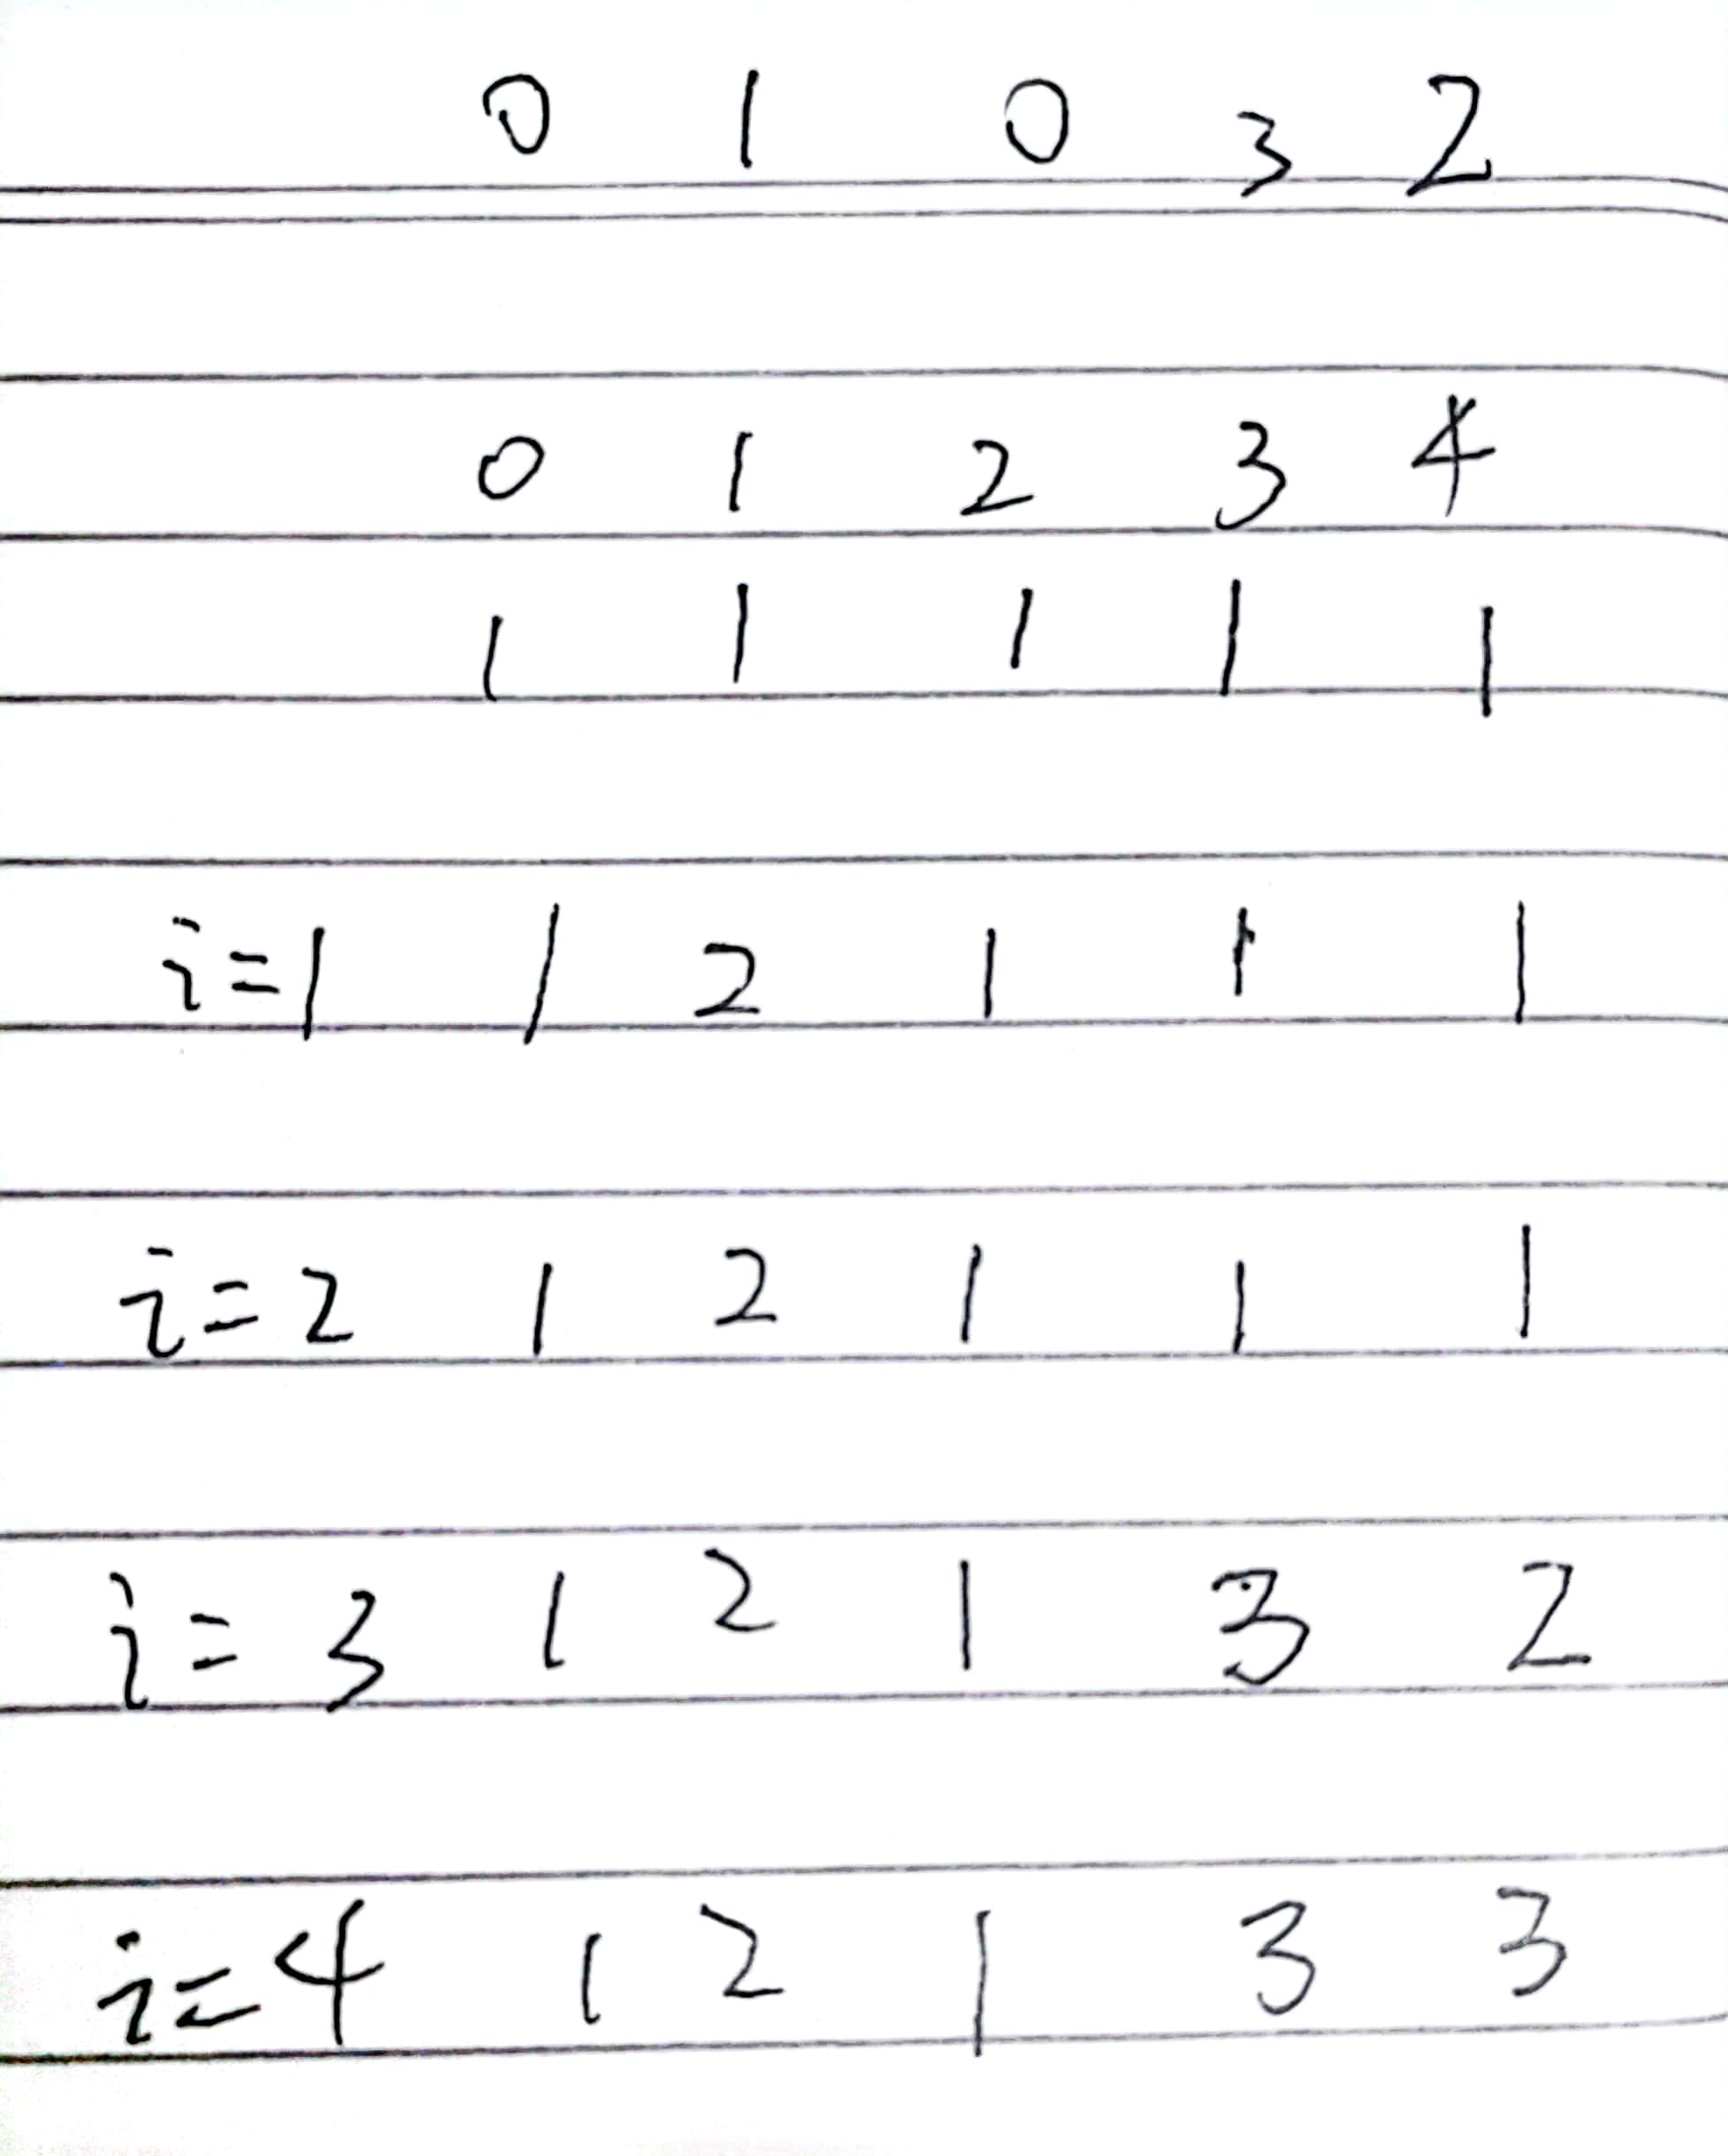 0 1 0 3 2
0 1 2 3 4
1 1 1 1 1
i=1 1 2 1 1 1
i=2 1 2 1 1 1
i=3 1 2 1 3 2
i=4 1 2 1 3 3